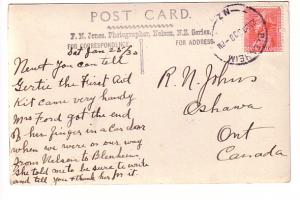 POST CARD.
F. N. Jones, Photographer, Nelson, N.Z. Series.
FOR CORRESPONDENCE
FOR ADDRESS
Sat Jan 25/30
Newt you can tell
Gertie the First Aid
Kit came very handy
Mrs Ford got the end
of her finger in a car door
when we were on our way
from Nelson to Blenheim
She told me to be sure to write
and tell you & thank her for it.
R. N. Johns
Oshawa
Ont
Canada